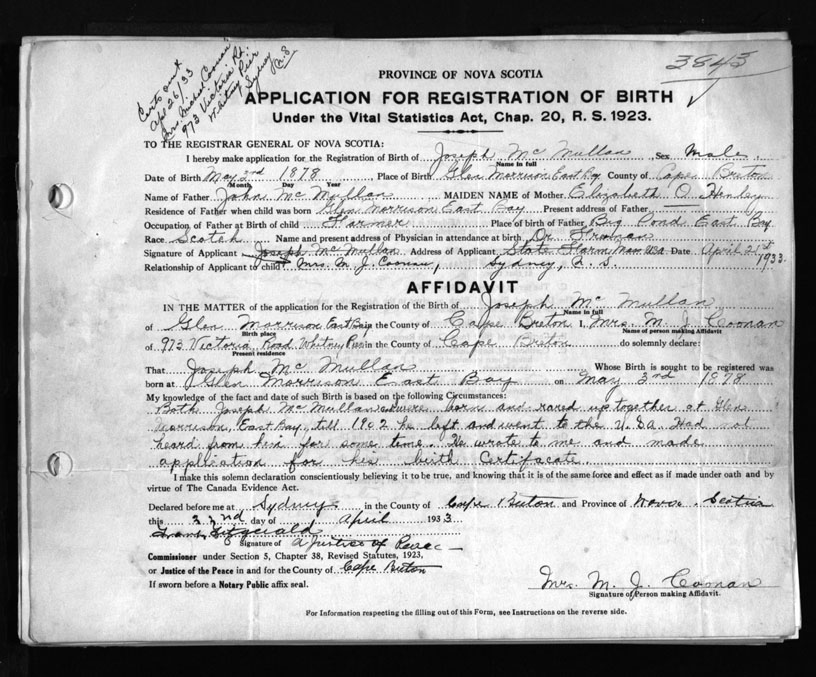 3843
Certs out
Apl 26/33
Mrs. Michael Coonan
973 Victoria Rd.
Whitney Pier
Sydney
PROVINCE OF NOVA SCOTIA
APPLICATION FOR REGISTRATION OF BIRTH
Under the Vital Statistics Act, Chap. 20, R. S. 1923.
TO THE REGISTRAR GENERAL OF NOVA SCOTIA:
I hereby make application for the Registration of Birth of Joseph Mc Mullan, Sex Male.
Name in full
Date of Birth May 2nd 1878 Place of Birth Glen Morrison East Bay County of Cape Breton
Month Day Year
Name of Father John Mc Mullan MAIDEN NAME of Mother Elizabeth O Henley
Residence of Father when child was born Glen Morrison East Bay Present address of Father
Occupation of Father at Birth of child Farmer Place of birth of Father Big Pond East Bay
Race Scotch Name and present address of Physician in attendance at birth Dr
Signature of Applicant Joseph Mc Mullan Address of Applicant State Farm Mass USA Date April 21st 1933.
Relationship of Applicant to child Mrs. M. J. Coonan, Sydney, N. S.
AFFIDAVIT
IN THE MATTER of the application for the Registration of the Birth of Joseph Mc Mullan
Name in full
of Glen Morrison East Bay in the County of Cape Breton I, Mrs. M J Coonan
Birth place Name of person making Affidavit
of 973 Victoria Road Whitney Pier in the County of Cape Breton do solemnly declare:
Present residence
That Joseph Mc Mullan Whose Birth is sought to be registered was
born at Glen Morrison East Bay on May 3rd 1878
My knowledge of the fact and date of such Birth is based on the following Circumstances:
Both Joseph Mc Mullan were born and rared up together at Glen
Morrison, East Bay, till 1902 he left and went to the U.S.A Had not
heard from him for some time. He wrote to me and made
application for his birth Certifscate.
I make this solemn declaration conscientiously believing it to be true, and knowing that it is of the same force and effect as if made under oath and by
virtue of The Canada Evidence Act.
Declared before me at Sydney in the County of Cape Breton and Province of Nova Scotia
this 22nd day of April 1933
Frank Fitzgerald
Signature of a Justice of Peace
Commissioner under Section 5, Chapter 38, Revised Statutes, 1923,
or Justice of the Peace in and for the County of Cape Breton
If sworn before a Notary Public affix seal.
Mrs. M. J. Coonan
Signature of Person making Affidavit.
For Information respecting the filling out of this Form, see Instructions on the reverse side.